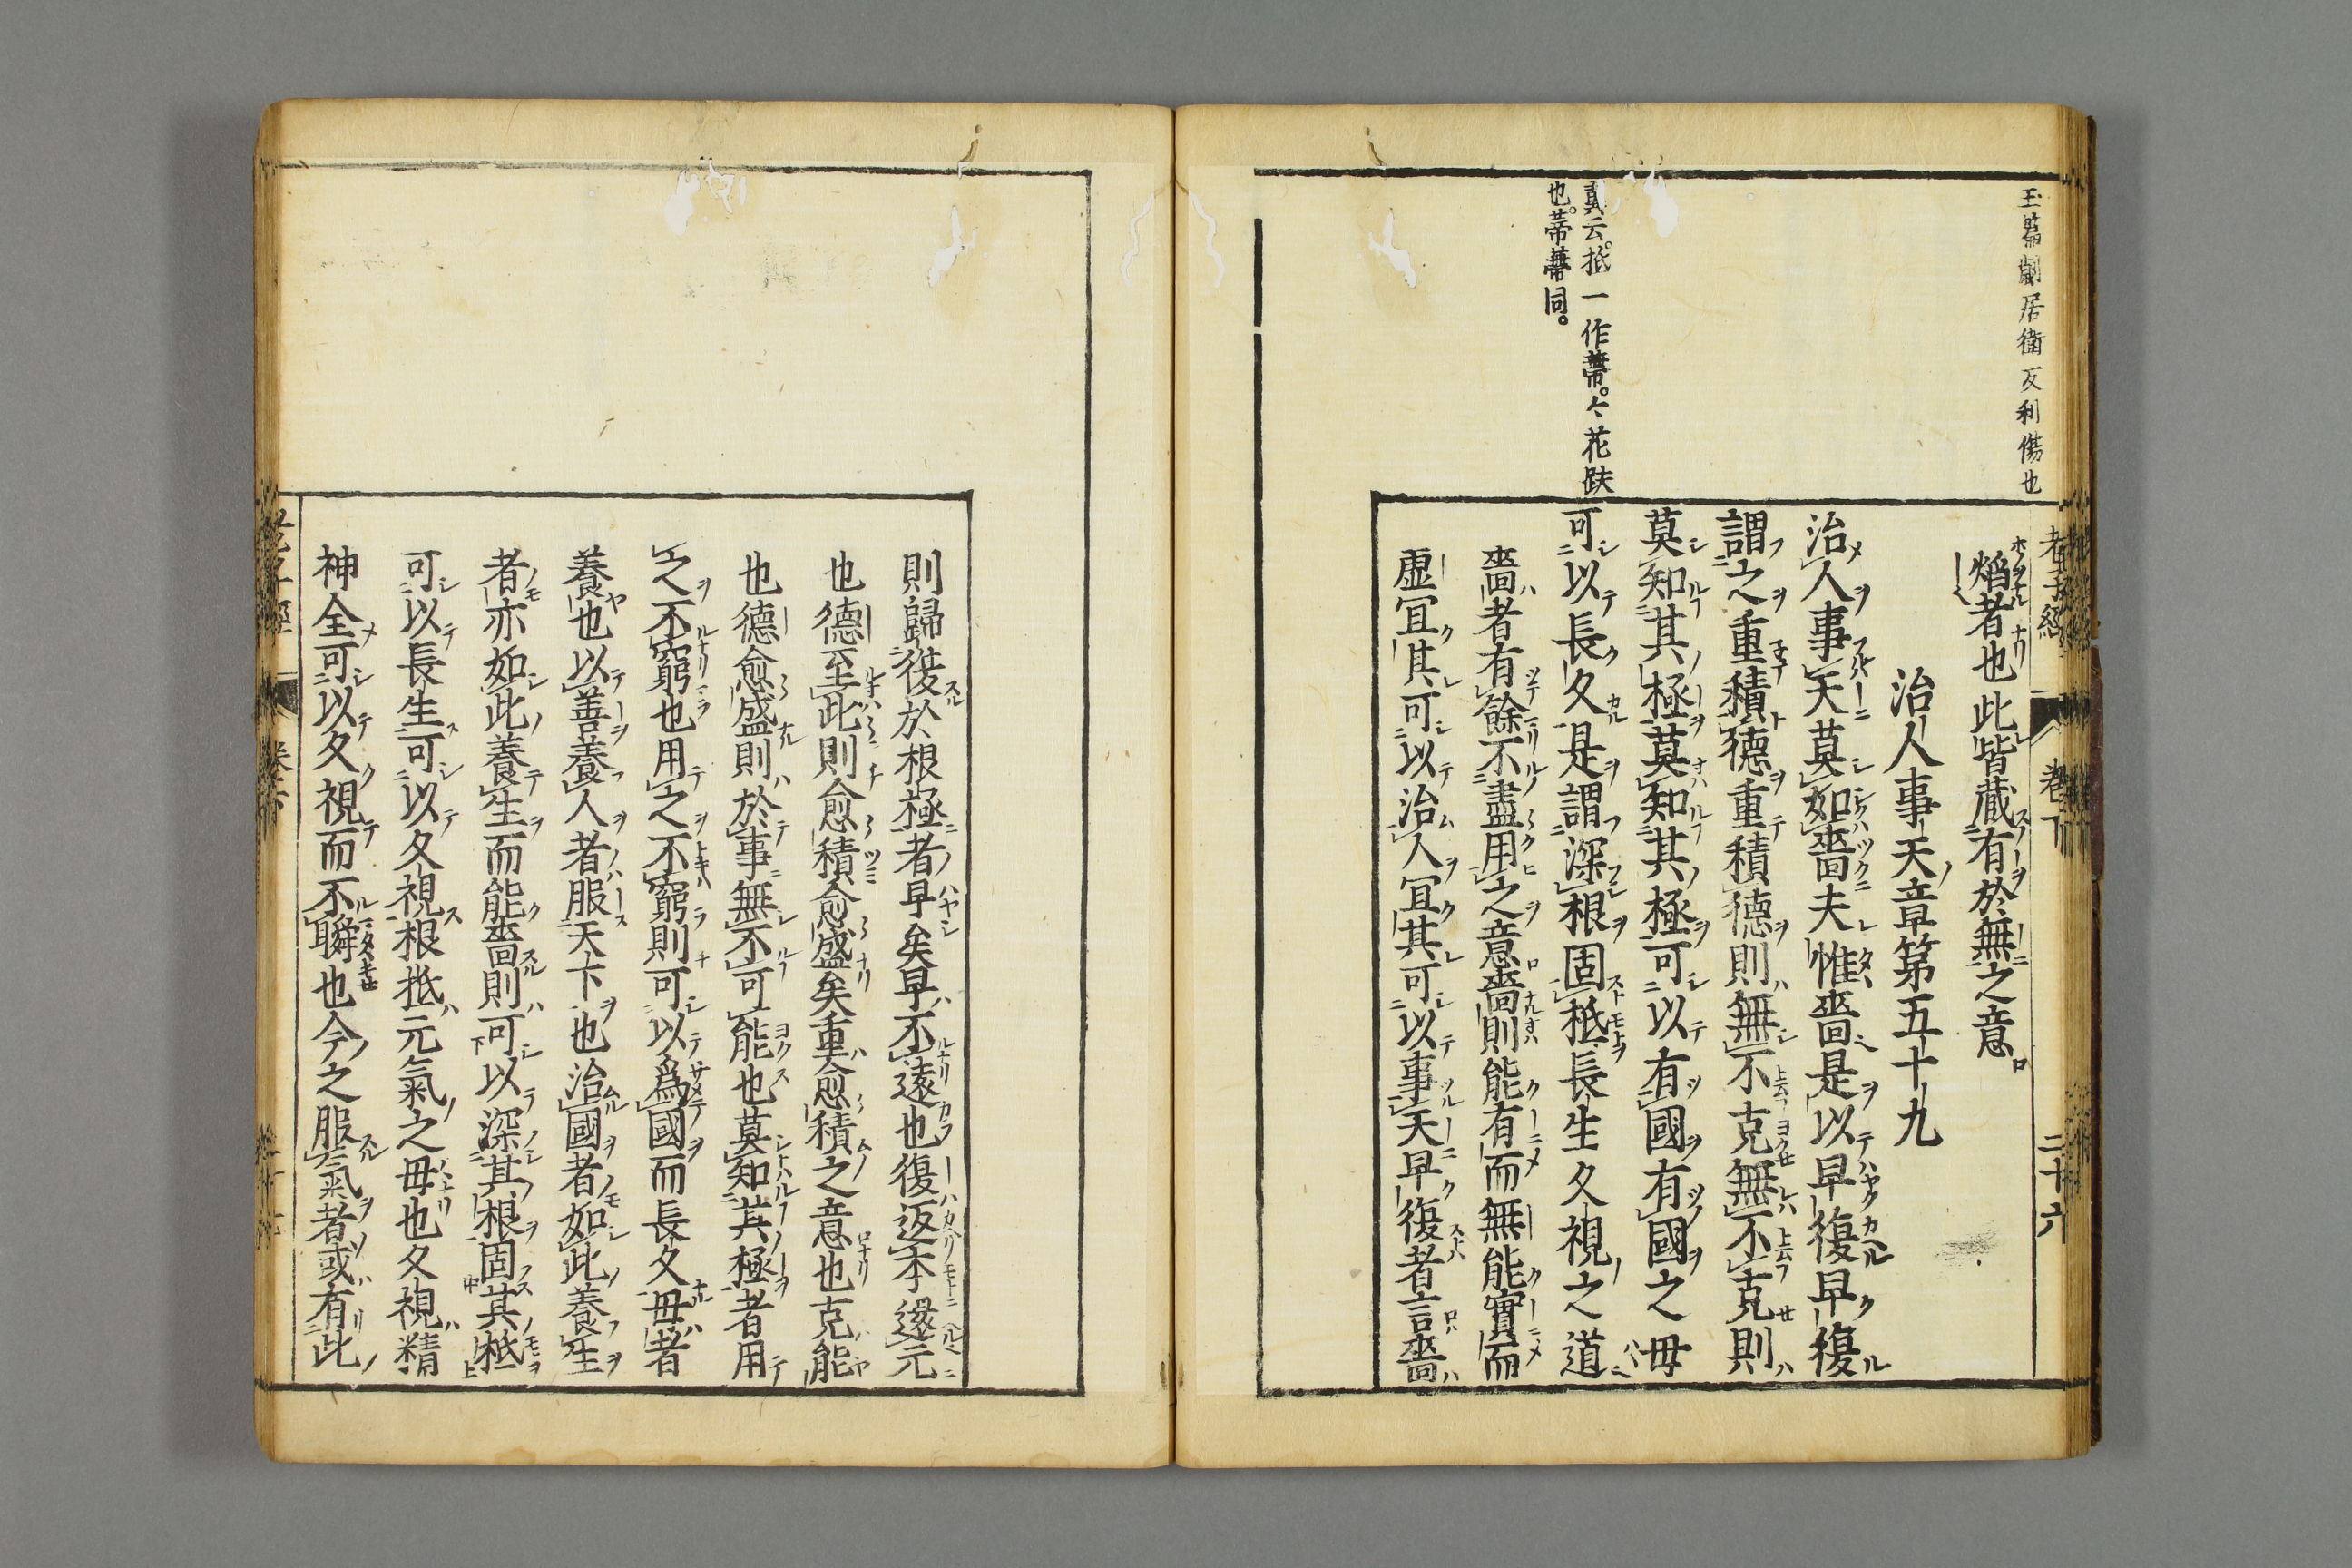 玉篇劌居衛反利傷也
老子經 卷下 二十六
焰者也此皆藏有於無之意
治人事天章第五十九
治人事天莫如嗇夫惟嗇是以早復早復
謂之重積德重積德則無不克無不克則
莫知其極莫知其極可以有國有國之母
可以長久是謂深根固柢長生久視之道
冀云抵一作蔕。々花趺
也。蒂蔕同。
嗇者有餘不盡用之意嗇則能有而無能實而
虛宜其可以治人宜其可以事天早復者言嗇
則歸復於根極者早矣早不遠也復返本還元
也德至此則愈積愈盛矣重愈積之意也克能
也德愈盛則於事無不可能也莫知其極者用
之不窮也用之不窮則可以爲國而長久母者
養也以善養人者服天下也治國者如此養生
者亦如此養生而能嗇則可以深其根固其柢
可以長生可以久視根抵元氣之母也久視精
神全可以久視而不瞬也今之服氣者或有此